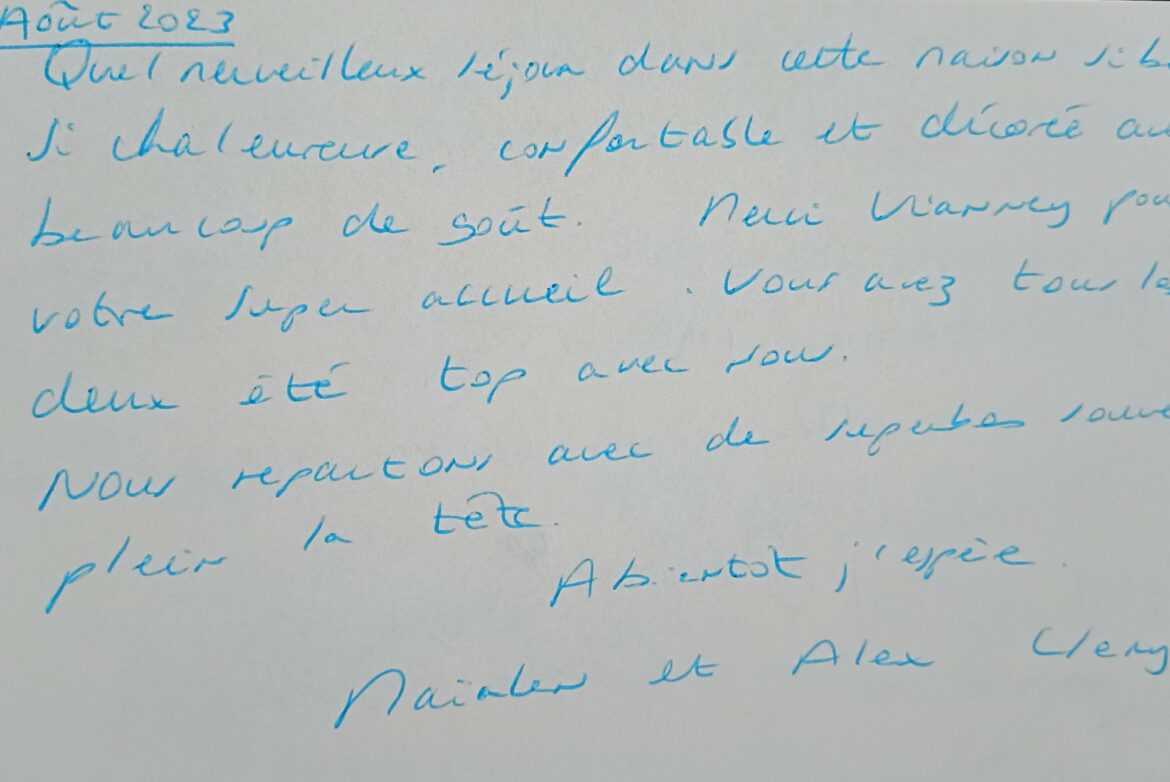 Août 2023
Quel merveilleux séjour dans cette maison si
si chaleureuse, confortable et décorée
beaucoup de goût. Merci Vianney pour
votre super accueil. Vous avez tous
deux été top avec nous.
Nous repartons avec de superbes
plein la tête.
A bientot j'espère.
et Alex Clery